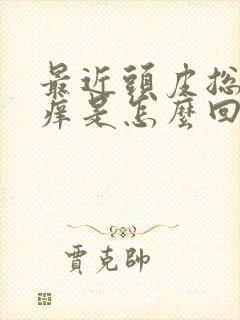 最近頭皮总
痒是怎麼回
賈克帥